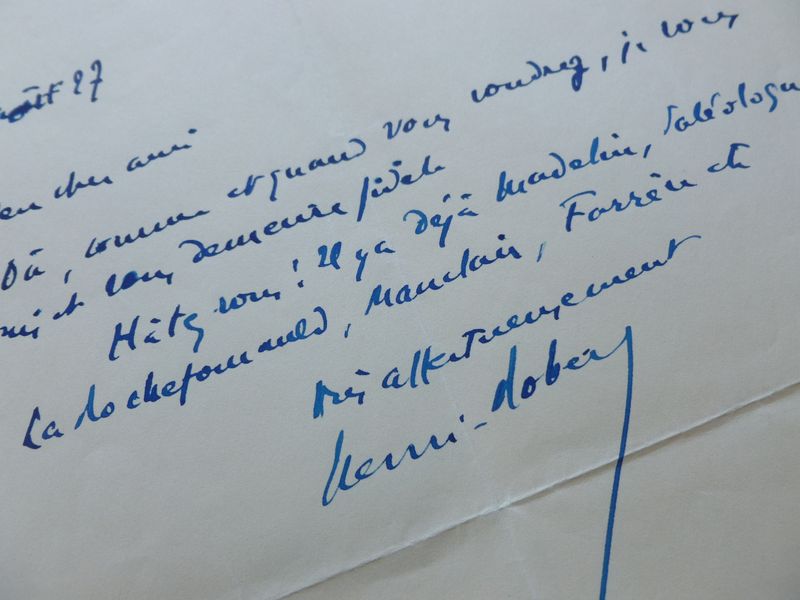 août 27
cher ami
Où, comme et quand vous voudrez, je vous
suis et vous demeure fidèle
Hâtez vous! Il ya déjà Madelin, Paléologu
La Rochefoucauld, Mauclair, Farrère etc
Très affectueusement
Henri-Robert